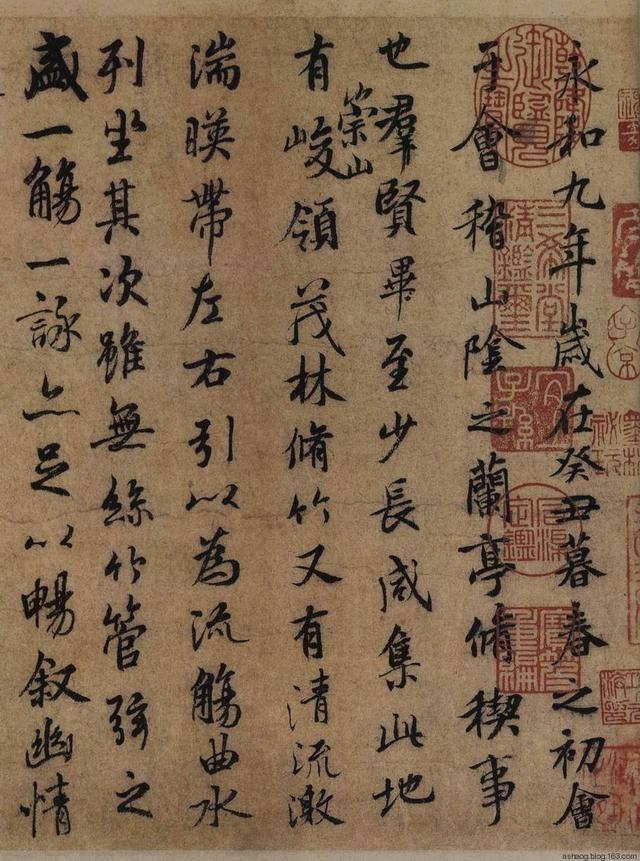 永和九年歲在癸丑暮春之初會
于會稽山陰之蘭亭脩稧事
也羣賢畢至少長咸集此地
有崇山峻領茂林脩竹又有清流激
湍暎帶左右引以為流觴曲水
列坐其次雖無絲竹管弦之
盛一觴一詠亦足以暢敘幽情
乾隆御覽之寶
三希堂精鑑璽
宜子孫
ashaog.blog.163.com